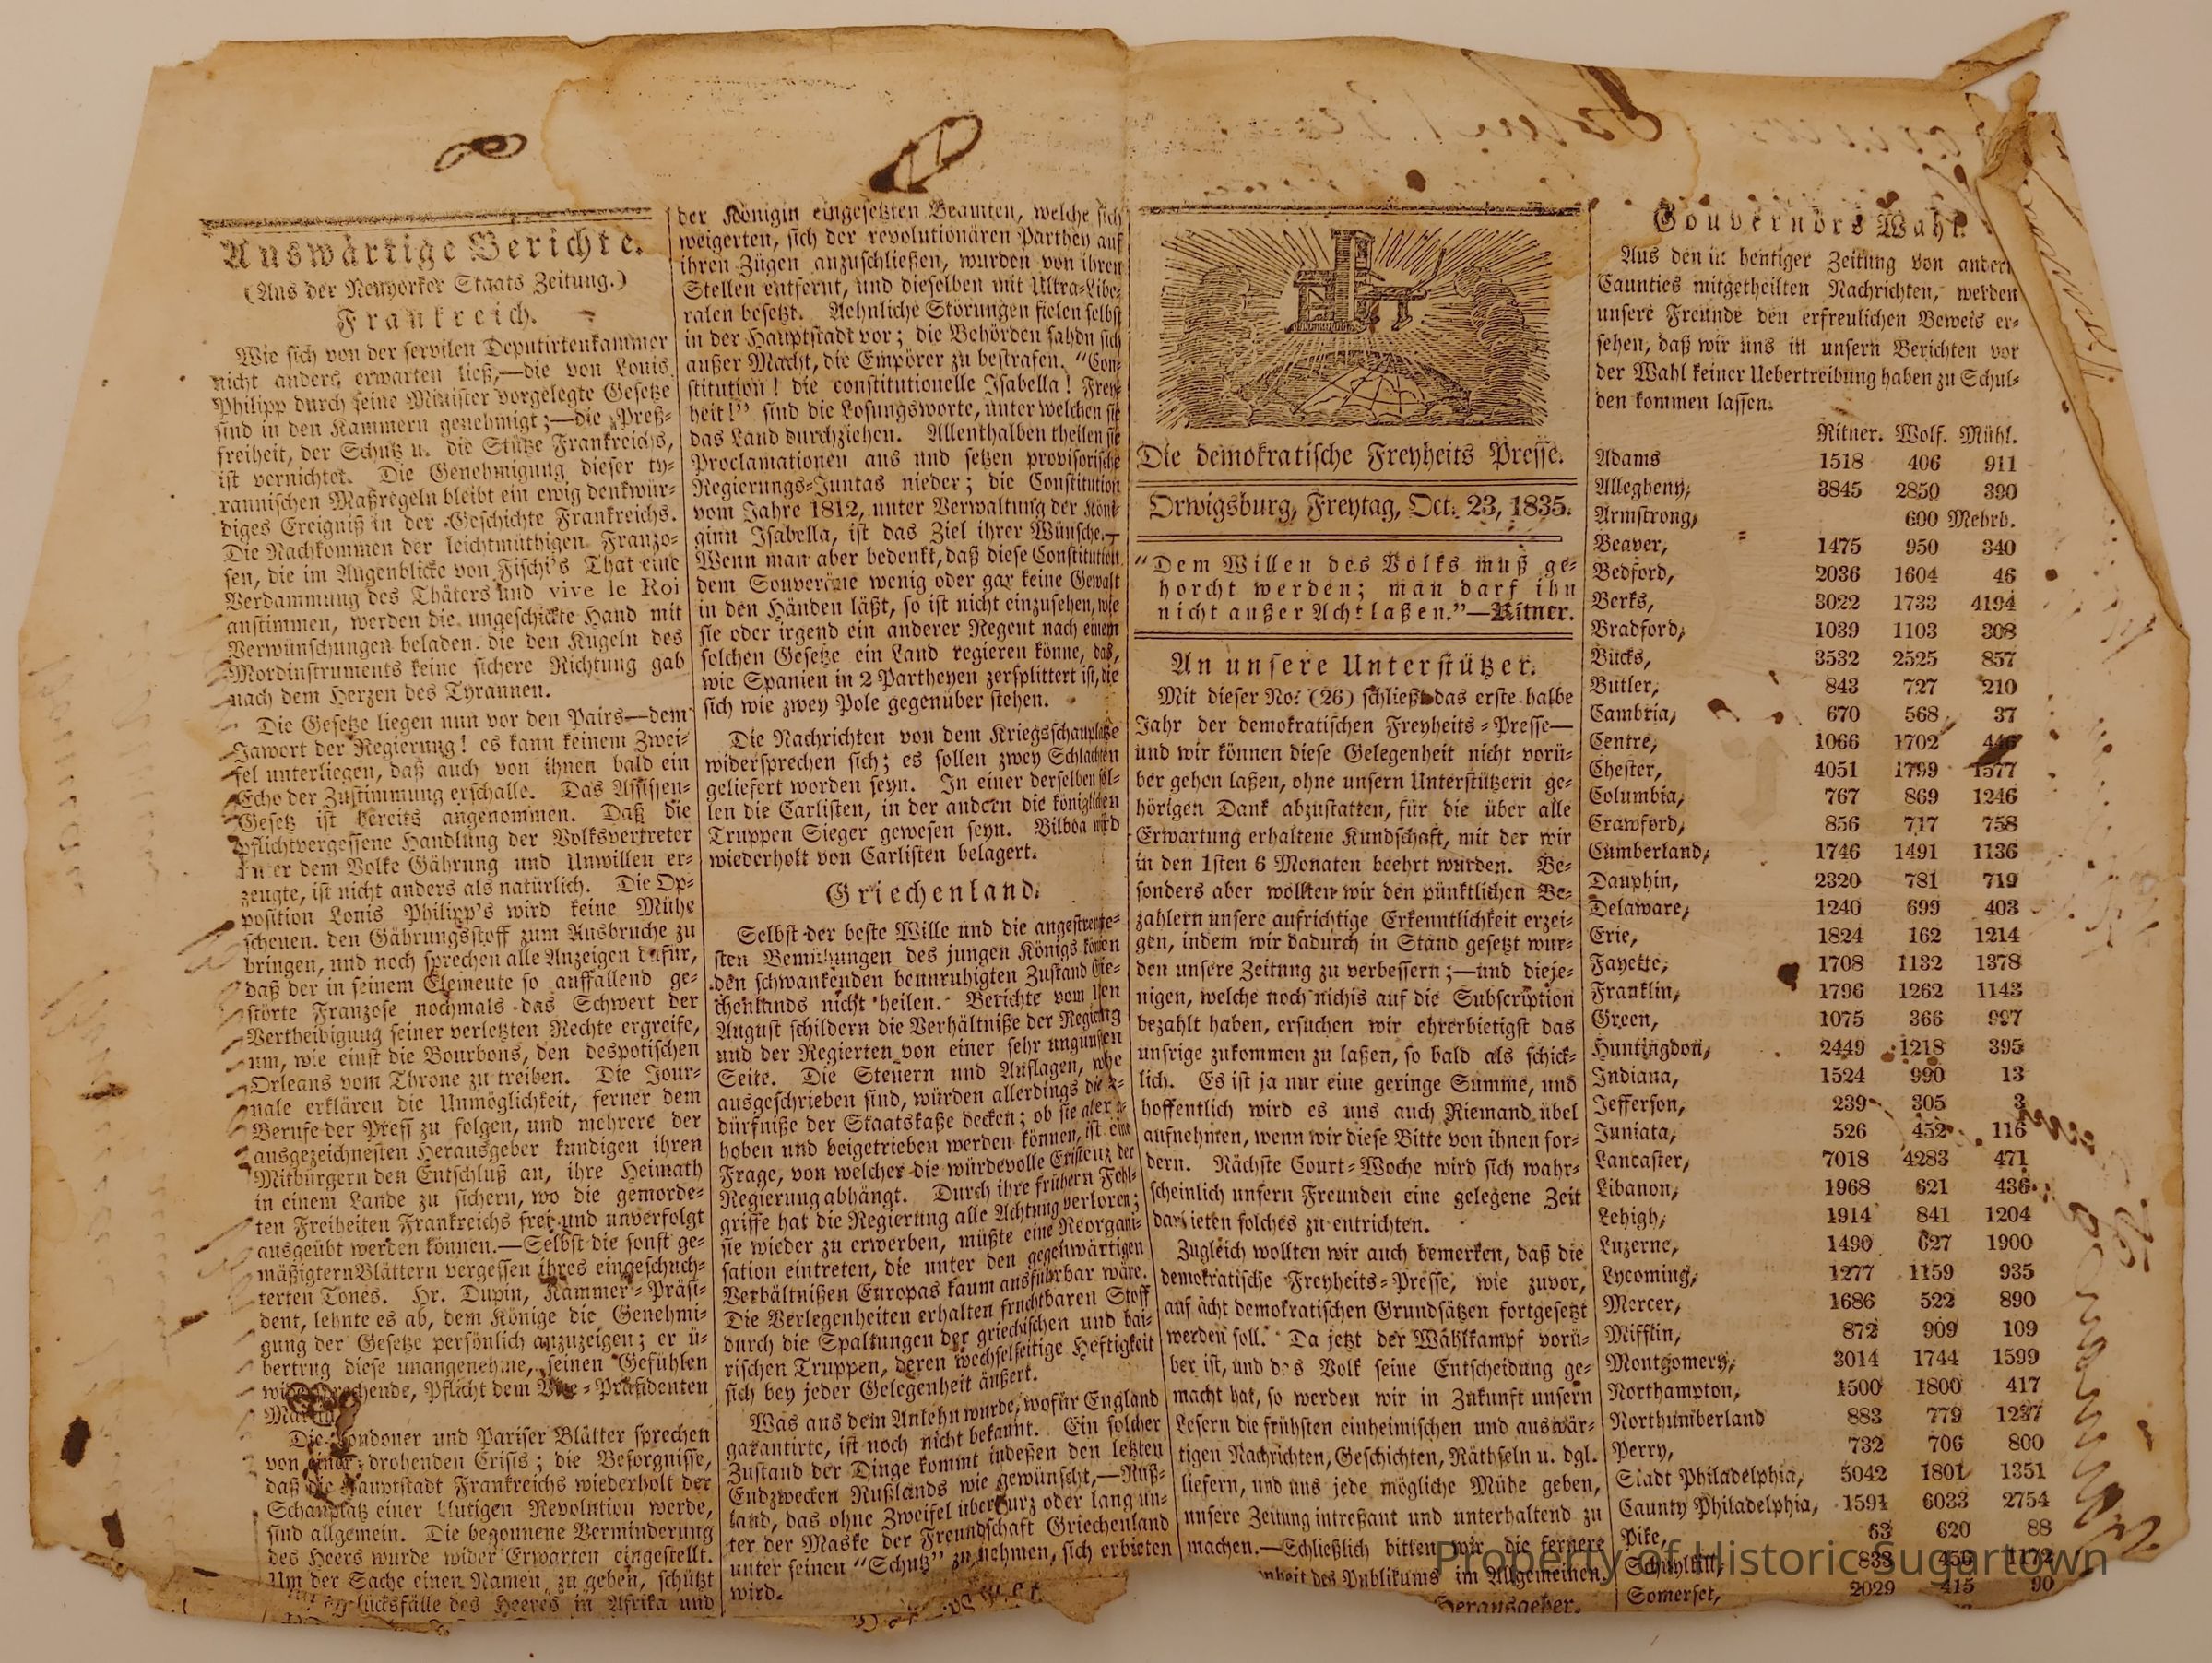 Auswärtige Berichte.
(Aus der Neuyorker Staats Zeitung.)
Frankreich.
Wie sich von der servilen Deputirtenkammer
nicht anders erwarten ließ,—die von Louis
Philipp durch seine Minister vorgelegte Gesetze
sind in den Kammern genehmigt;—die Preß-
freiheit, der Schutz u. die Stütze Frankreichs,
ist vernichtet. Die Genehmigung dieser ty-
rannischen Maßregeln bleibt ein ewig denkwür-
diges Ereigniß in der Geschichte Frankreichs.
Die Nachkommen der leichtmüthigen Franzo-
sen, die im Augenblicke von Fischi's That eine
Verdammung des Thäters und vive le Roi
anstimmen, werden die ungeschickte Hand mit
Verwünschungen beladen. die den Kugeln des
Mordinstruments keine sichere Richtung gab
nach dem Herzen des Tyrannen.
Die Gesetze liegen nun vor den Pairs—dem
Jawort der Regierung! es kann keinem Zwei-
fel unterliegen, daß auch von ihnen bald ein
Echo der Zustimmung erschalle. Das Assissen-
Gesetz ist bereits angenommen. Daß die
pflichtvergessene Handlung der Volksvertreter
unter dem Volke Gährung und Unwillen er-
zeugte, ist nicht anders als natürlich. Die Op-
position Lonis Philipp's wird keine Mühe
scheuen. den Gährungsstoff zum Ausbruche zu
bringen, und noch sprechen alle Anzeigen dafür,
daß der in seinem Elemente so auffallend ge-
störte Franzose nochmals das Schwert der
Vertheidigung seiner verletzten Rechte ergreife,
um, wie einst die Bourbons, den despotischen
Orleans vom Throne zu treiben. Die Jour-
nale erklären die Unmöglichkeit, ferner dem
Berufe der Press zu folgen, und mehrere der
ausgezeichnesten Herausgeber kundigen ihren
Mitbürgern den Entschluß an, ihre Heimath
in einem Lande zu sichern, wo die gemorde-
ten Freiheiten Frankreichs frei und unverfolgt
ausgeübt werden können.—Selbst die sonst ge-
mäßigtern Blättern vergessen ihres eingeschüch-
terten Tones. Hr. Dupin, Kammer-Präsi-
dent, lehnte es ab, dem Könige die Genehmi-
gung der Gesetze persönlich anzuzeigen; er ü-
bertrug diese unangenehme, seinen Gefühlen
widersprechende, Pflicht dem Vice-Präsidenten
Martin.
Die Londoner und Pariser Blätter sprechen
von einer drohenden Crisis; die Besorgnisse,
daß die Hauptstadt Frankreichs wiederholt der
Schauplatz einer blutigen Revolution werde,
sind allgemein. Die begonnene Verminderung
des Heers wurde wider Erwarten eingestellt.
Um der Sache einen Namen zu geben, schützt
lücksfälle des Heeres in Afrika und
der Königin eingesetzten Beamten, welche sich
weigerten, sich der revolutionären Parthey auf
ihren Zügen anzuschließen, wurden von ihren
Stellen entfernt, und dieselben mit Ultra-Libe-
ralen besetzt. Aehnliche Störungen fielen selbst
in der Hauptstadt vor; die Behörden sahdn sich
außer Macht, die Empörer zu bestrafen. "Con-
stitution! die constitutionelle Isabella! Frey-
heit!" sind die Losungsworte, unter welchen sie
das Land durchziehen. Allenthalben theilen sie
Proclamationen aus und setzen provisorische
Regierungs-Juntas nieder; die Constitution
vom Jahre 1812, unter Verwaltung der Köni-
ginn Isabella, ist das Ziel ihrer Wünsche.—
Wenn man aber bedenkt, daß diese Constitution
dem Souveräne wenig oder gar keine Gewalt
in den Händen läßt, so ist nicht einzusehen, wie
sie oder irgend ein anderer Regent nach einem
solchen Gesetze ein Land regieren könne, das,
wie Spanien in 2 Partheyen zersplittert ist, die
sich wie zwey Pole gegenüber stehen.
Die Nachrichten von dem Kriegsschauplatze
widersprechen sich; es sollen zwey Schlachten
geliefert worden seyn. In einer derselben sol-
len die Carlisten, in der andern die königlichen
Truppen Sieger gewesen seyn. Bilboa wird
wiederholt von Carlisten belagert.
Griechenland.
Selbst der beste Wille und die angestrengte-
sten Bemühungen des jungen Königs können
den schwankenden beunruhigten Zustand Grie-
chenlands nicht heilen. Berichte vom
August schildern die Verhältniße der Regierung
und der Regierten von einer sehr ungünstigen
Seite. Die Steuern und Auflagen, welche
ausgeschrieben sind, würden allerdings die Be-
dürfniße der Staatskaße decken; ob sie aber er-
hoben und beigetrieben werden können, ist eine
Frage, von welcher die würdevolle Existenz der
Regierung abhängt. Durch ihre frühern Fehl-
griffe hat die Regierung alle Achtung verloren;
sie wieder zu erwerben, müßte eine Reorgani-
sation eintreten, die unter den gegenwärtigen
Verhältnißen Europas kaum ausführbar wäre.
Die Verlegenheiten erhalten fruchtbaren Stoff
durch die Spaltungen der griechischen und bai-
rischen Truppen, deren wechselseitige Heftigkeit
sich bey jeder Gelegenheit äußert.
Was aus dem Anlehn wurde, wofür England
garantirte, ist noch nicht bekannt. Ein solcher
Zustand der Dinge kommt indeßen den letzten
Endzwecken Rußlands wie gewünscht,—Ruß-
land, das ohne Zweifel über kurz oder lang un-
ter der Maske der Freundschaft Griechenland
unter seinen "Schutz" zu nehmen, sich erbieten
wird.
Die demokratische Freyheits Presse.
Orwigsburg, Freytag, Oct. 23, 1835.
"Dem Willen des Volks muß ge-
horcht werden; man darf ihn
nicht außer Acht laßen."—Ritner.
An unsere Unterstützer.
Mit dieser No: (26) schließt das erste halbe
Jahr der demokratischen Freyheits-Presse—
und wir können diese Gelegenheit nicht vorü-
ber gehen laßen, ohne unsern Unterstützern ge-
hörigen Dank abzustatten, für die über alle
Erwartung erhaltene Kundschaft, mit der wir
in den 1sten 6 Monaten beehrt wurden. Be-
sonders aber wollten wir den pünktlichen Be-
zahlern unsere aufrichtige Erkenntlichkeit erzei-
gen, indem wir dadurch in Stand gesetzt wur-
den unsere Zeitung zu verbessern;—und dieje-
nigen, welche noch nichts auf die Subscription
bezahlt haben, ersuchen wir ehrerbietigst das
unsrige zukommen zu laßen, so bald als schick-
lich. Es ist ja nur eine geringe Summe, und
hoffentlich wird es uns auch Niemand übel
aufnehmen, wenn wir diese Bitte von ihnen for-
dern. Nächste Court-Woche wird sich wahr-
scheinlich unsern Freunden eine gelegene Zeit
darbieten solches zu entrichten.
Zugleich wollten wir auch bemerken, daß die
demokratische Freyheits-Presse, wie zuvor,
auf ächt demokratischen Grundsätzen fortgesetzt
werden soll. Da jetzt der Wahlkampf vorü-
ber ist, und das Volk seine Entscheidung ge-
macht hat, so werden wir in Zukunft unsern
Lesern die frühsten einheimischen und auswär-
tigen Nachrichten, Geschichten, Räthseln u. dgl.
liefern, und uns jede mögliche Mühe geben,
unsere Zeitung intreßant und unterhaltend zu
machen.—Schließlich bitten wir die fernere
des Publikums im Allgemeinen.
Herausgeber.
Gouvernörs Wahl.
Aus den in heutiger Zeitung von andern
Caunties mitgetheilten Nachrichten, werden
unsere Freunde den erfreulichen Beweis er-
sehen, daß wir uns in unsern Berichten vor
der Wahl keiner Uebertreibung haben zu Schul-
den kommen lassen.
Ritner. Wolf. Mühl.
Adams 1518 406 911
Allegheny, 3845 2850 390
Armstrong, 600 Mehrb.
Beaver, 1475 950 340
Bedford, 2036 1604 46
Berks, 3022 1733 4194
Bradford, 1039 1103 308
Bucks, 3532 2525 857
Butler, 843 727 210
Cambria, 670 568 37
Centre, 1066 1702 446
Chester, 4051 1799 1577
Columbia, 767 869 1246
Crawford, 856 717 758
Cumberland, 1746 1491 1136
Dauphin, 2320 781 719
Delaware, 1240 699 403
Erie, 1824 162 1214
Fayette, 1708 1132 1378
Franklin, 1796 1262 1143
Green, 1075 366 997
Huntingdon, 2449 1218 395
Indiana, 1524 990 13
Jefferson, 239 305 3
Juniata, 526 452 116
Lancaster, 7018 4283 471
Libanon, 1968 621 436
Lehigh, 1914 841 1204
Luzerne, 1490 627 1900
Lycoming, 1277 1159 935
Mercer, 1686 522 890
Mifflin, 872 909 109
Montgomery, 3014 1744 1599
Northampton, 1500 1800 417
Northumberland 883 779 1287
Perry, 732 706 800
Stadt Philadelphia, 5042 1801 1351
Caunty Philadelphia, 1591 6033 2754
Pike, 63 620 88
Schuylkill, 838 456 1172
Somerset, 2029 415 90
Property of Historic Sugartown